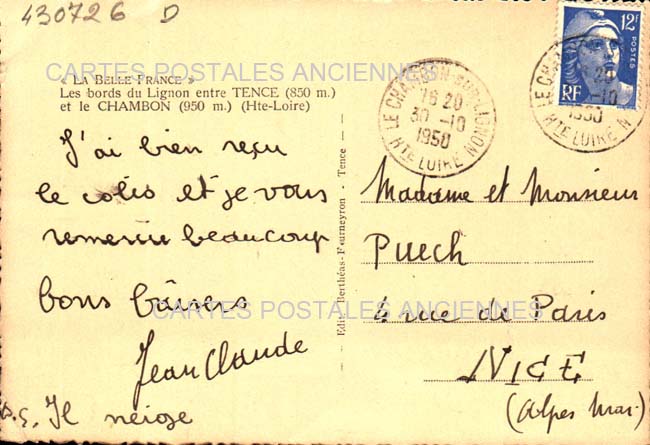 430726 D
« LA BELLE FRANCE »
Les bords du Lignon entre TENCE (850 m.)
et le CHAMBON (950 m.) (Hte-Loire)
CARTES POSTALES ANCIENNES
J'ai bien reçu
le colis et je vous
remercie beaucoup
bons baisers
Jean Claude
P.S. Il neige
Edit. Berthéas-Fourneyron - Tence -
LE CHAMBON-SUR-LIGNON
16 20
30 -10
1950
HTE LOIRE
12F
POSTES
RF
LE CHAMBON
20
-10
1950
HTE LOIRE
Madame et Monsieur
PUECH
4 rue de Paris
NICE
(Alpes Mar.)
CARTES POSTALES ANCIENNES